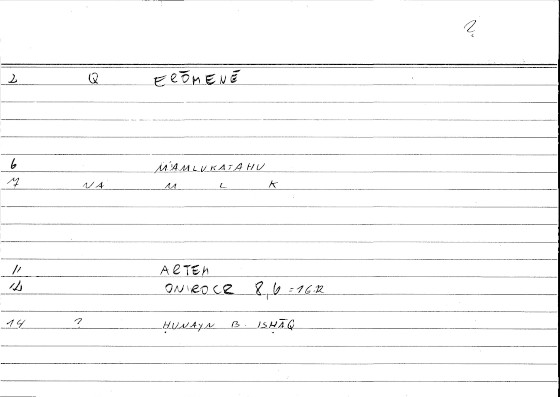 ?
2 Q ERŌMENĒ
6 MAMLUKATAHU
7 NA M L K
11 ARTEM
12 ONIROCR 8,6 = 16.12
14 ? ḤUNAYN B. ISḤĀQ